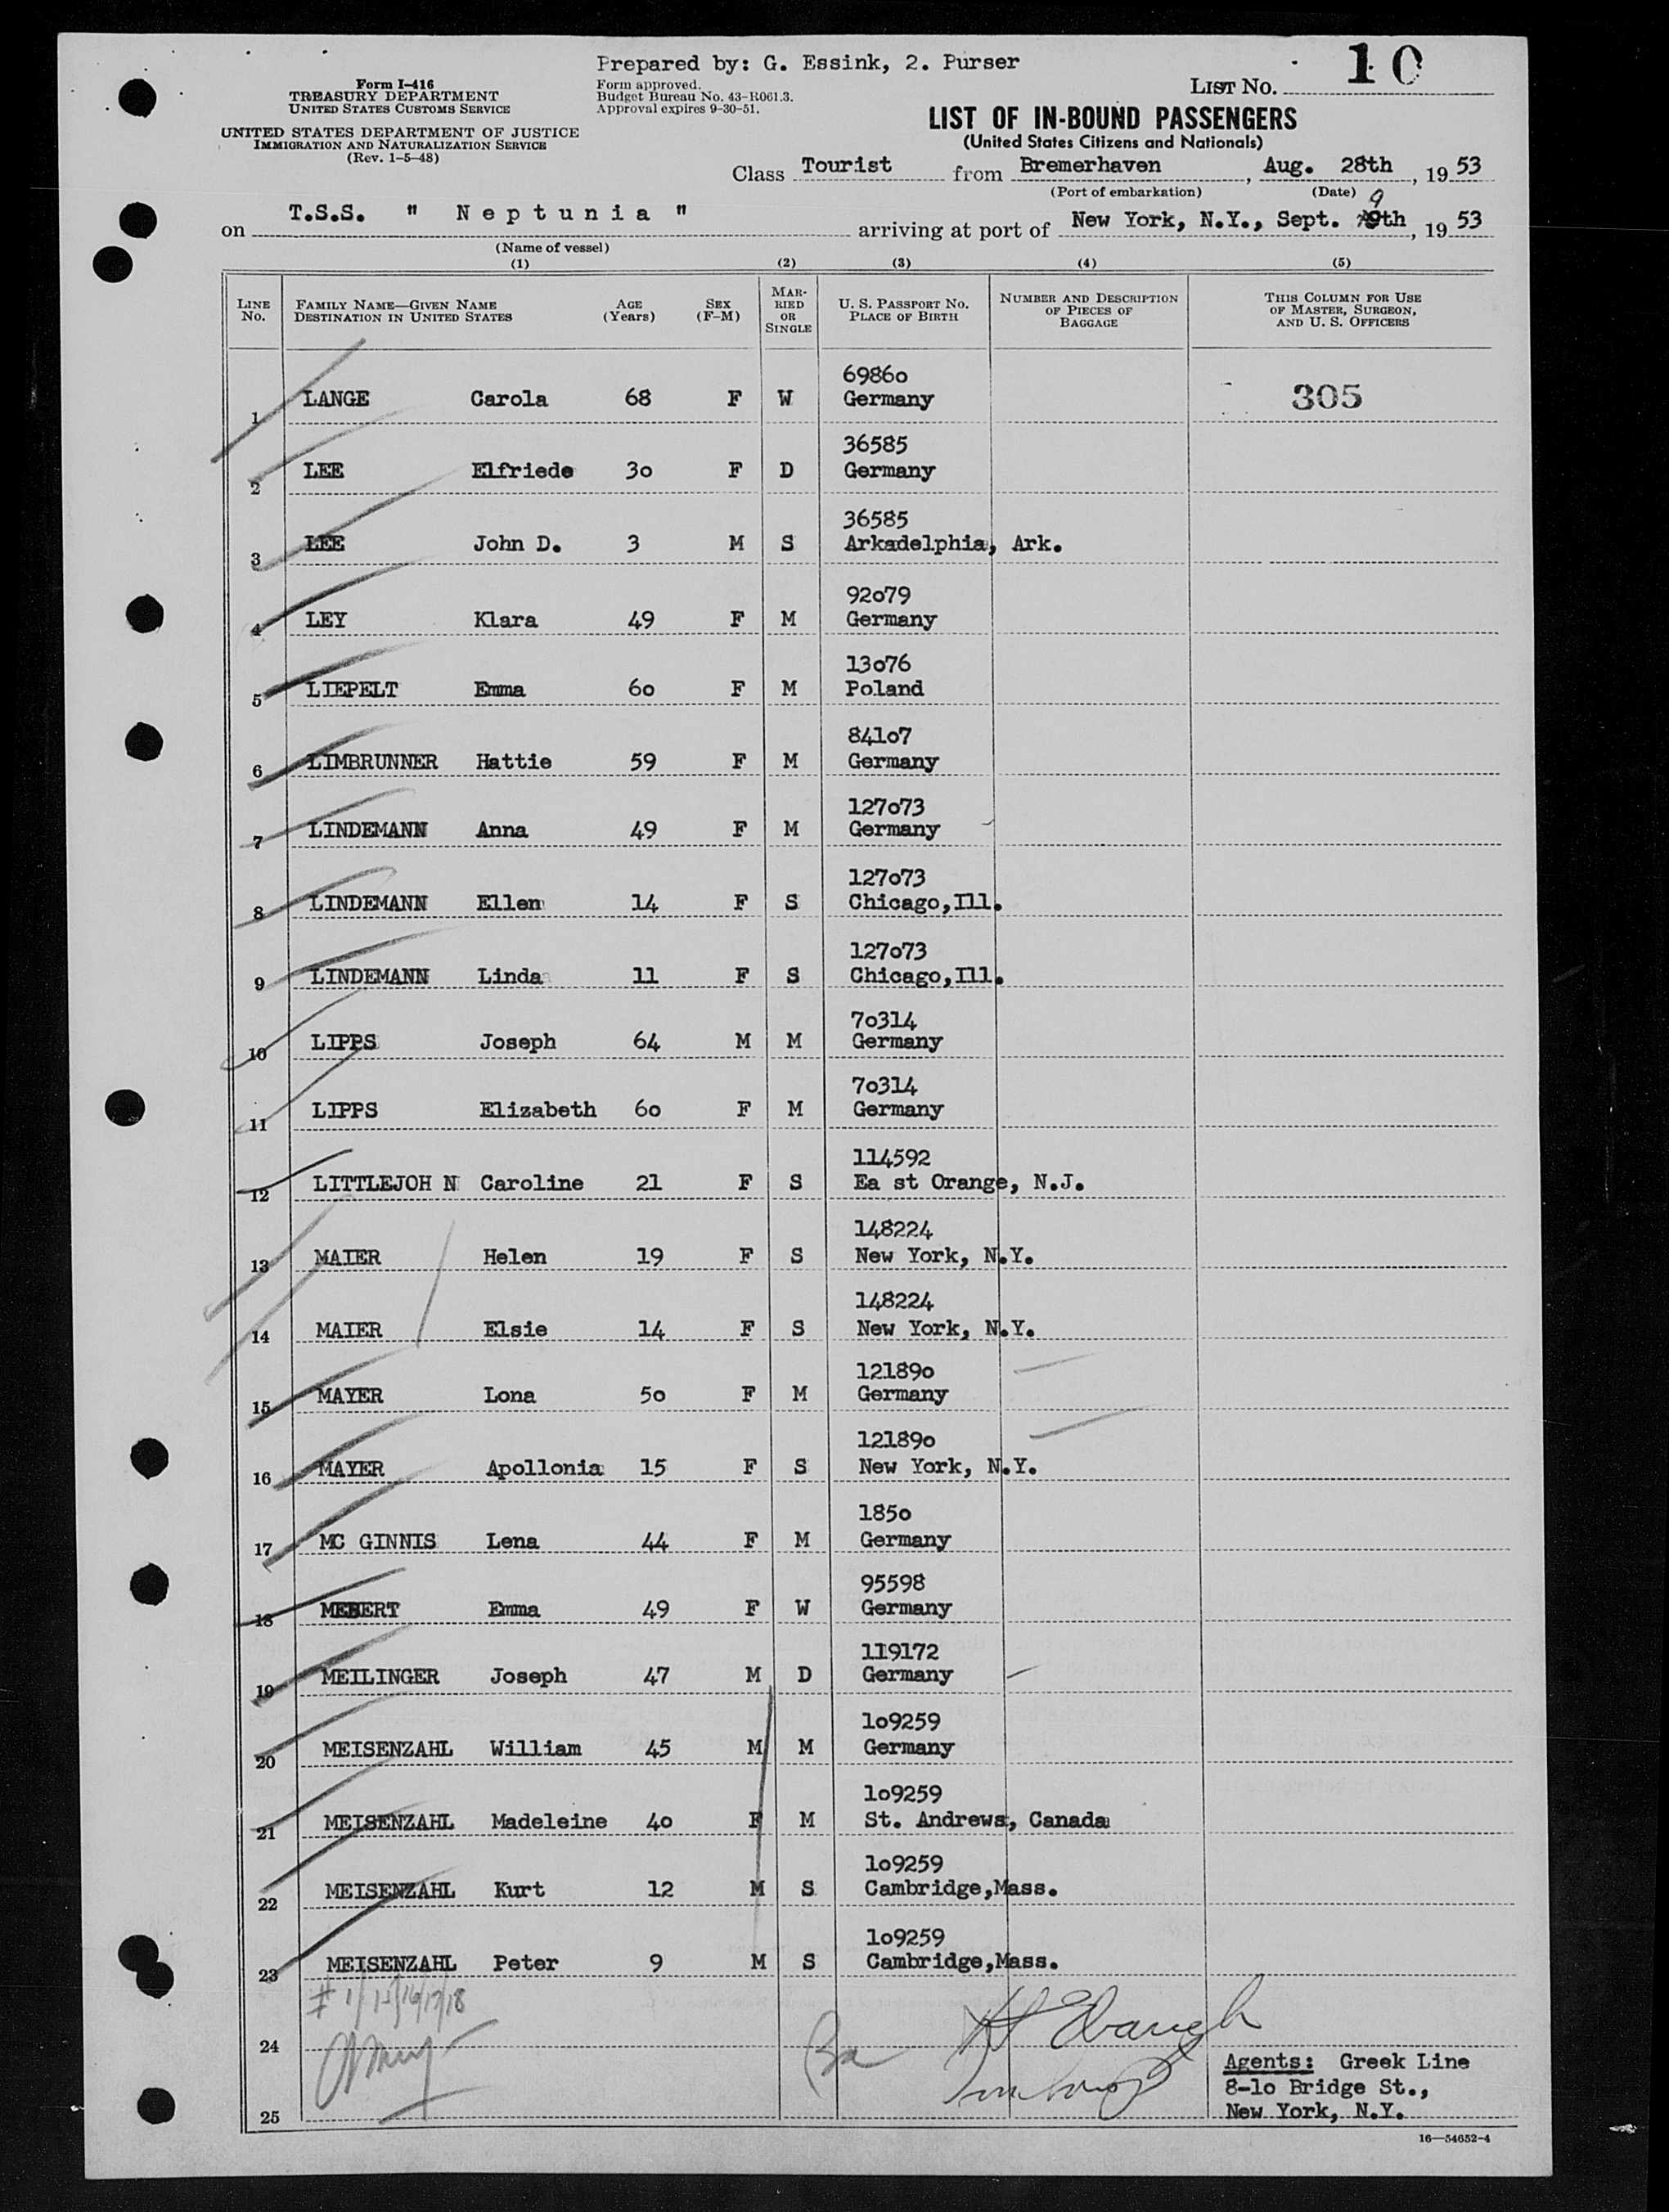 Prepared by: G. Essink, 2. Purser
Form I-416
TREASURY DEPARTMENT
UNITED STATES CUSTOMS SERVICE
UNITED STATES DEPARTMENT OF JUSTICE
IMMIGRATION AND NATURALIZATION SERVICE
(Rev. 1-5-48)
Form approved.
Budget Bureau No. 43-R061.3.
Approval expires 9-30-51.
LIST NO. 10
LIST OF IN-BOUND PASSENGERS
(United States Citizens and Nationals)
Class Tourist from Bremerhaven, Aug. 28th, 1953
(Port of embarkation) (Date)
on T.S.S. " Neptunia " arriving at port of New York, N.Y., Sept. 9th, 1953
(Name of vessel)
(1) (2) (3) (4) (5)
LINE No. FAMILY NAME—GIVEN NAME DESTINATION IN UNITED STATES AGE (Years) SEX (F-M) MARRIED OR SINGLE U. S. PASSPORT NO. PLACE OF BIRTH NUMBER AND DESCRIPTION OF PIECES OF BAGGAGE THIS COLUMN FOR USE OF MASTER, SURGEON, AND U. S. OFFICERS
69860
1 LANGE Carola 68 F W Germany 305
36585
2 LEE Elfriede 30 F D Germany
36585
3 LEE John D. 3 M S Arkadelphia, Ark.
92079
4 LEY Klara 49 F M Germany
13076
5 LIEPELT Emma 60 F M Poland
84107
6 LIMBRUNNER Hattie 59 F M Germany
127073
7 LINDEMANN Anna 49 F M Germany
127073
8 LINDEMANN Ellen 14 F S Chicago,Ill.
127073
9 LINDEMANN Linda 11 F S Chicago,Ill.
70314
10 LIPPS Joseph 64 M M Germany
70314
11 LIPPS Elizabeth 60 F M Germany
114592
12 LITTLEJOH N Caroline 21 F S Ea st Orange, N.J.
148224
13 MAIER Helen 19 F S New York, N.Y.
148224
14 MAIER Elsie 14 F S New York, N.Y.
121890
15 MAYER Lona 50 F M Germany
121890
16 MAYER Apollonia 15 F S New York, N.Y.
1850
17 MC GINNIS Lena 44 F M Germany
95598
18 MEBERT Emma 49 F W Germany
119172
19 MEILINGER Joseph 47 M D Germany
109259
20 MEISENZAHL William 45 M M Germany
109259
21 MEISENZAHL Madeleine 40 F M St. Andrews, Canada
109259
22 MEISENZAHL Kurt 12 M S Cambridge,Mass.
109259
23 MEISENZAHL Peter 9 M S Cambridge,Mass.
24
25
Agents: Greek Line
8-10 Bridge St.,
New York, N.Y.
16—54652-4